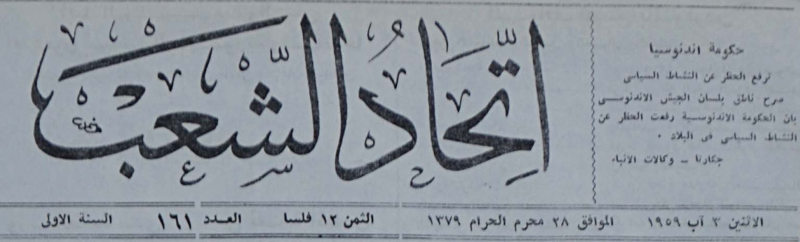 حكومة اندنوسيا
ترفع الحظر عن النشاط السياسى
صرح ناطق بلسان الجيش الاندنوسى
بان الحكومة الاندنوسية رفعت الحظر عن
النشاط السياسى فى البلاد •
جكارتا – وكالات الانباء
اتِّحادُ الشَّعب
الاثنين ٣ آب ١٩٥٩ الموافق ٢٨ محرم الحرام ١٣٧٩ الثمن ١٢ فلسا العدد ١٦١ السنة الاولى